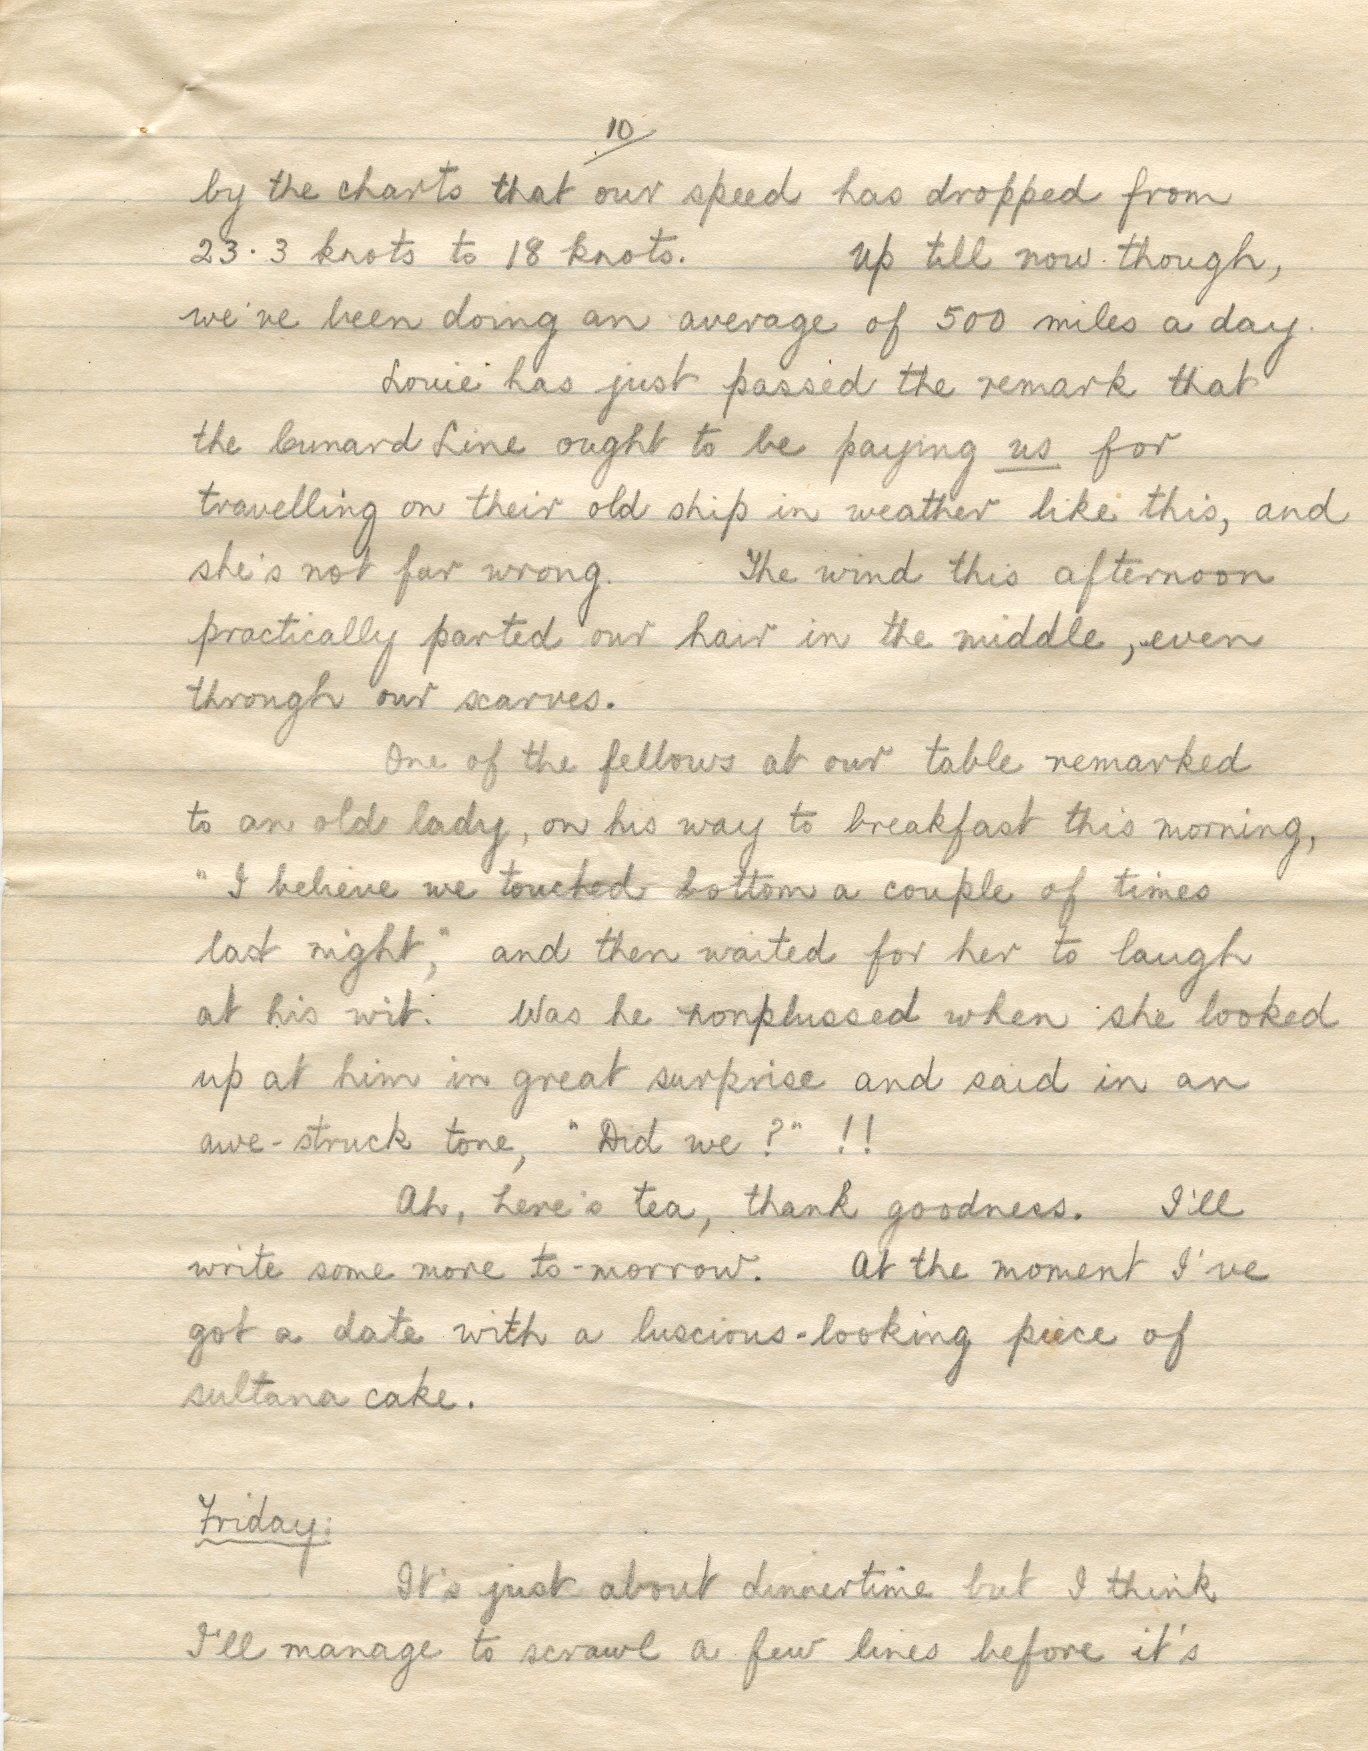 10
by the charts that our speed has dropped from
23.3 knots to 18 knots. Up till now though,
we've been doing an average of 500 miles a day.
Louie has just passed the remark that
the Cunard Line ought to be paying us for
travelling on their old ship in weather like this, and
she's not far wrong. The wind this afternoon
practically parted our hair in the middle, even
through our scarves.
One of the fellows at our table remarked
to an old lady, on his way to breakfast this morning,
"I believe we touched bottom a couple of times
last night," and then waited for her to laugh
at his wit. Was he nonplussed when she looked
up at him in great surprise and said in an
awe-struck tone, "Did we?" !!
Ah, here's tea, thank goodness. I'll
write some more to-morrow. At the moment I've
got a date with a luscious-looking piece of
sultana cake.
Friday:
It's just about dinnertime but I think
I'll manage to scrawl a few lines before it's